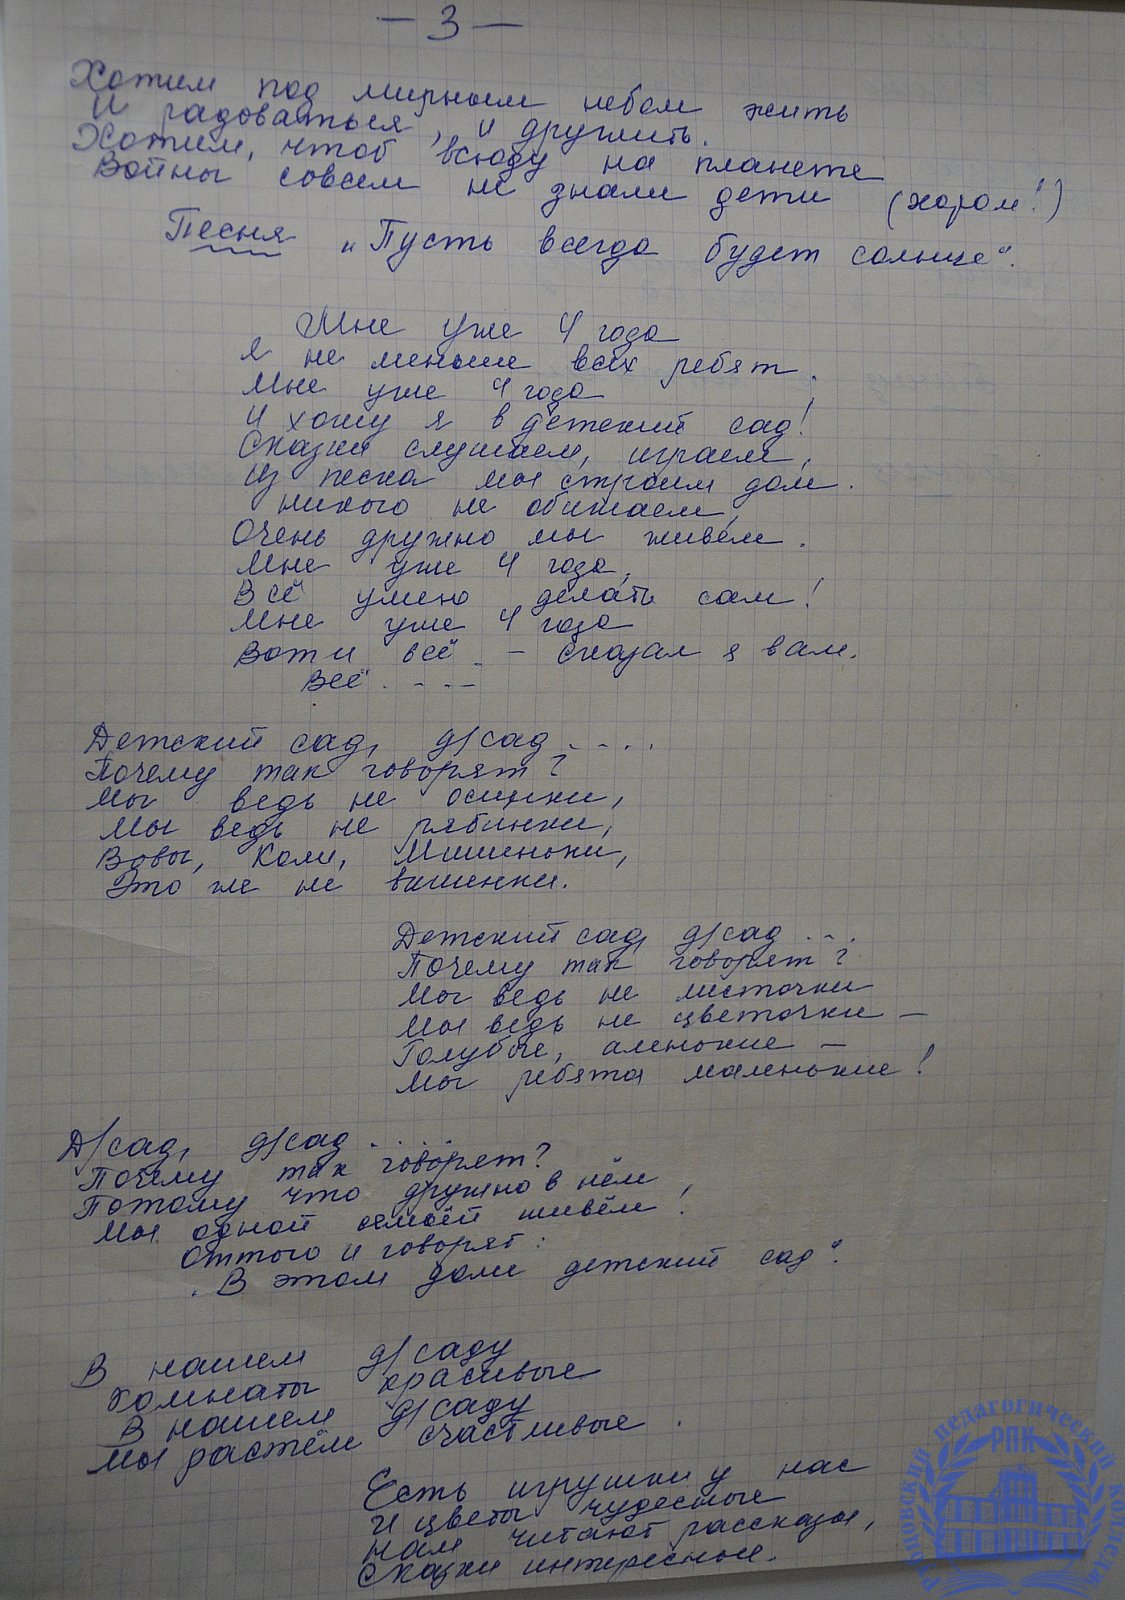 — 3 —
Хотим под мирным небом жить
И радоваться, и дружить.
Хотим, чтоб всюду на планете
Войны совсем не знали дети (хором!)
Песня „Пусть всегда будет солнце“.
Мне уже 4 года
Я не меньше всех ребят.
Мне уже 4 года
И хожу я в детский сад!
Сказки слушаем, играем,
Из песка мы строим дом.
Никого не обижаем,
Очень дружно мы живём.
Мне уже 4 года,
Всё умею делать сам!
Мне уже 4 года
Вот и всё - сказал я вам.
Всё . - - -
Детский сад, д/сад . . . .
Почему так говорят?
Мы ведь не осинки,
Мы ведь не рябинки,
Вовы, Коли, Мишеньки,
Это же не вишенки.
Детский сад, д/сад . . .
Почему так говорят?
Мы ведь не листочки
Мы ведь не цветочки —
Голубые, аленькие —
Мы ребята маленькие!
Д/сад, д/сад . . . . .
Почему так говорят?
Потому что дружно в нём,
Мы одной семьёй живём!
Оттого и говорят:
„В этом доме детский сад“.
В нашем д/саду
Комнаты красивые
В нашем д/саду
Мы растём счастливые.
Есть игрушки у нас
И цветы чудесные
Нам читают рассказы,
Сказки интересные.
педагогический колледж
РПК